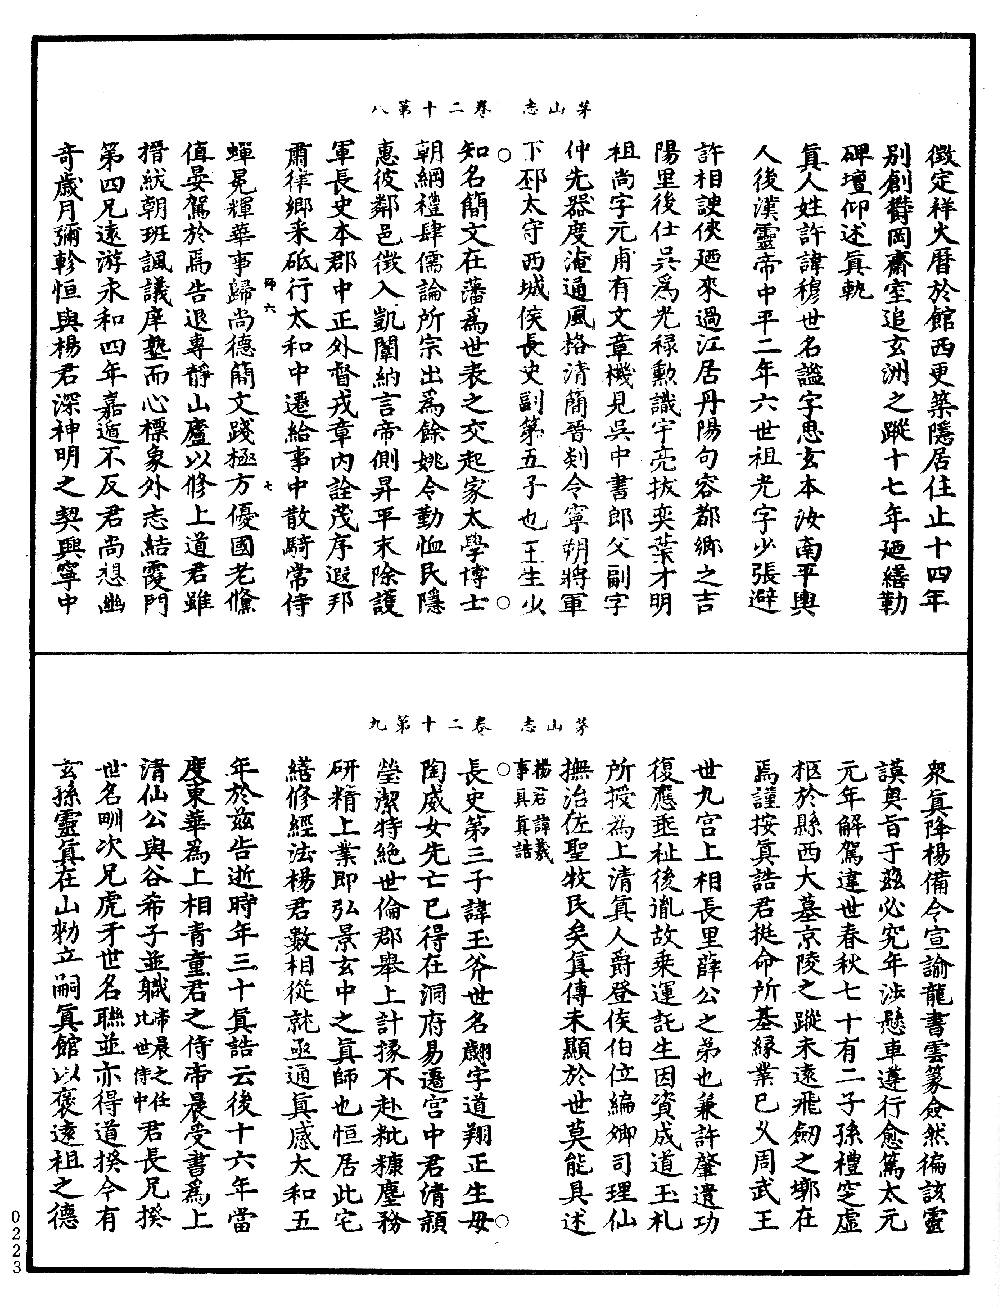 茅山志　卷二十第八
徵定祥火曆於館西更築隱居住止十四年
別創鬱岡齋室追玄洲之蹤十七年廼繕勒
碑壇仰述真軌
真人姓許諱穆世名謐字思玄本汝南平輿
人後漢靈帝中平二年六世祖光字少張避
許相諛俠廼來過江居丹陽句容都鄉之吉
陽里後仕吳為光祿勳識宇亮拔奕葉才明
祖尚字元甫有文章機見吳中書郎父副字
仲先器度淹通風格清簡晉剡令寧朔將軍
下邳太守西城侯長史副第五子也王生少
知名簡文在藩為世表之交起家太學博士
朝綱禮肆儒論所宗出為餘姚令勤恤民隱
惠彼鄰邑徵入凱闈納言帝側昇平末除護
軍長史本郡中正外督戎章內詮茂序遐邦
肅律鄉釆砥行太和中遷給事中散騎常侍
蟬冕輝華事歸尚德簡文踐極方優國老儵
值晏駕於焉告退專靜山廬以修上道君雖
搢紱朝班諷議庠塾而心標象外志結霞門
第四兄遠游永和四年嘉遁不反君尚想幽
奇歲月彌軫恒與楊君深神明之契興寧中
師六　七
茅山志　卷二十第九
衆真降楊備令宣諭龍書雲篆僉然徧該靈
謨奧旨于茲必究年涉懸車遵行愈篤太元
元年解駕違世春秋七十有二子孫禮空虛
柩於縣西大墓京陵之蹤未遠飛劒之墎在
焉謹按真誥君挺命所基緣業已乂周武王
世九宮上相長里薛公之弟也兼許肇遺功
復應垂祉後胤故乘運託生因資成道玉札
所授為上清真人爵登侯伯位編卿司理仙
撫治佐聖牧民矣真傳未顯於世莫能具述
楊君諱羲
事具真誥
長史第三子諱玉斧世名翽字道翔正生母
陶威女先亡已得在洞府易遷宮中君清穎
瑩潔特絕世倫郡舉上計掾不赴粃糠塵務
研精上業即弘景玄中之真師也恒居此宅
繕修經法楊君數相從就亟通真感太和五
年於茲告逝時年三十真誥云後十六年當
度東華為上相青童君之侍帝晨受書為上
清仙公與谷希子並職帝晨之任比世侍中君長兄揆
世名甽次兄虎牙世名聯並亦得道揆今有
玄孫靈真在山勑立嗣真館以褒遠祖之德
0223